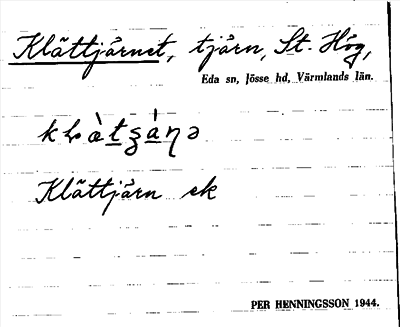 Klättjärnet, tjärn, St. Hög,
Eda sn, Jösse hd, Värmlands län.
Klättjärn ek
PER HENNINGSSON 1944.